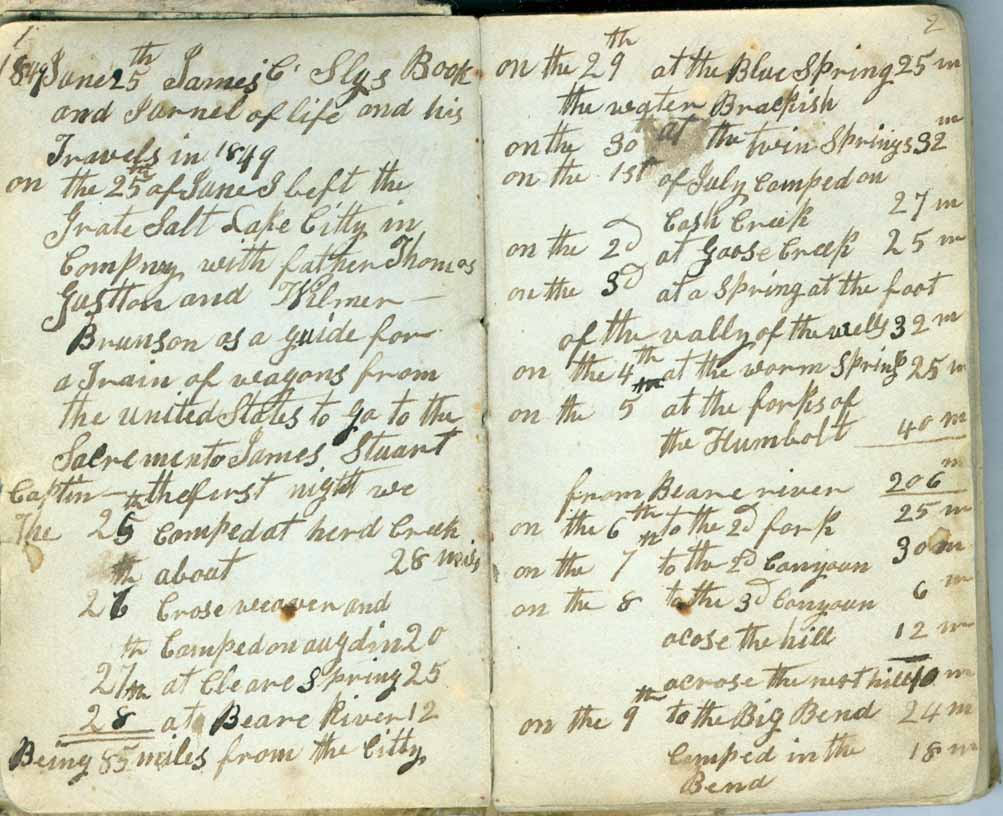 1
1849 June 25th James C Slys Book
and Jurnel of life and his
Travels in 1849
on the 25th of June I left the
Grate Salt Lake Citty in
Compney with father Thomas
Gustton and Wilmer
Brunson as a guide for
a Train of wagons from
the united States to go to the
Sacremento James Stuart
Captin — the first night we
The 25th Camped at herd Creek
about 28 miles
26th Crose weaver and
Camped on augdin 20
27th at Cleare Spring 25
28th at Beare River 12
Being 85 miles from the Citty
2
on the 29th at the Blue Spring 25 m
the water Brackish
on the 30 at the twin Springs 32 m
on the 1st of July Camped on
Cash Creek 27 m
on the 2d at Goose Creek 25 m
on the 3d at a Spring at the foot
of the vally of the wells 32 m
on the 4th at the worm Spring 25 m
on the 5th at the forks of
the Humbolt 40 m
from Beare river 206 m
on the 6th to the 2d fork 25 m
on the 7th to the 2d Canyoun 30 m
on the 8 to the 3d Canyoun 6 m
acose the hill 12 m
acrose the next hill 10 m
on the 9th to the Big Bend 24 m
Camped in the 18 m
Bend